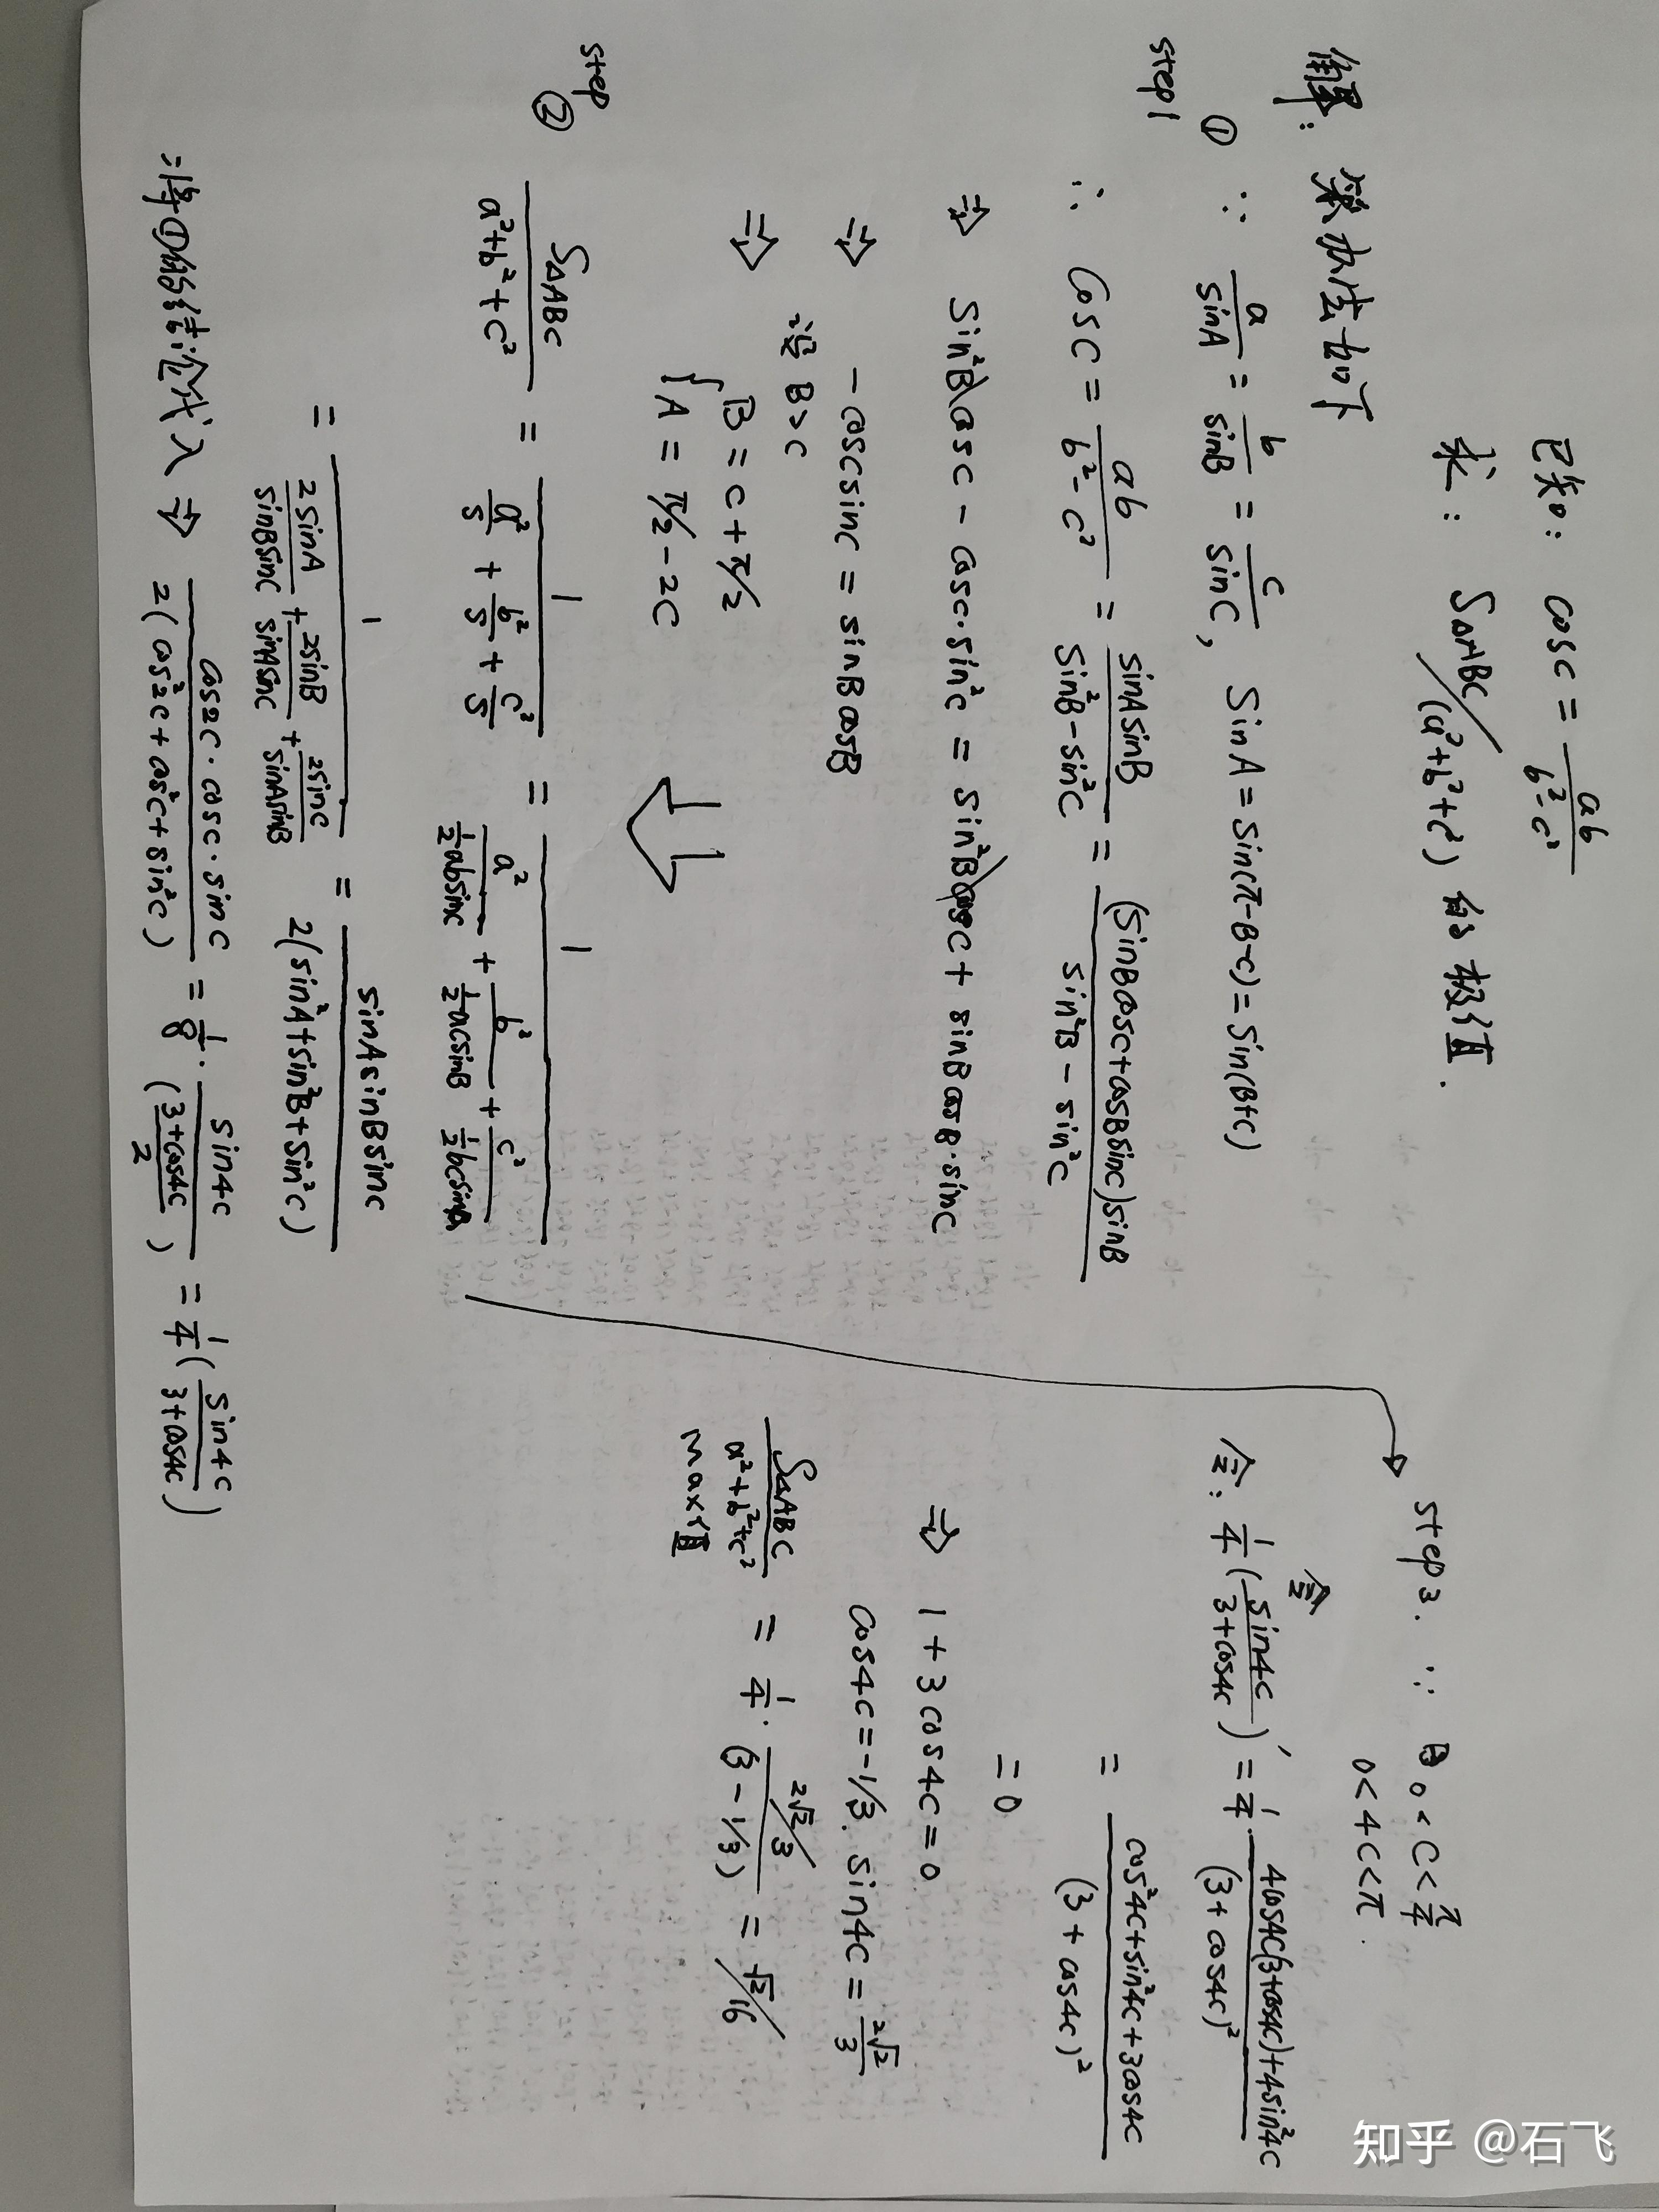 已知: cosC = ab/(b²-c²)
求: S△ABC/(a²+b²+c²) 的极值.
解: 案办法如下
step1 ① ∵ a/sinA = b/sinB = c/sinC, SinA = Sin(π-B-C) = Sin(B+C)
∴ CosC = ab/(b²-c²) = sinAsinB/(Sin²B-sin²C) = (SinBcosC+cosBsinC)sinB/(sin²B-sin²C)
⇒ Sin²BcosC - cosC·sin²C = Sin²BcosC + sinBcosB·sinC
⇒ -cosCsinC = sinBcosB
⇒ 设 B>C
{B = C+π/2
A = π/2-2C
step ② S△ABC/(a²+b²+c²) = 1/(a²/S + b²/S + c²/S) = 1/(a²/(½absinC) + b²/(½acsinB) + c²/(½bcsinA))
= 1/(2sinA/(sinBsinC) + 2sinB/(sinAsinC) + 2sinC/(sinAsinB)) = sinAsinBsinC/(2(sin²A+sin²B+sin²C))
=将①的结论代入 ⇒ cos2C·cosC·sinC/(2(cos²2C+cos²C+sin²C)) = 1/8·sin4C/((3+cos4C)/2) = 1/4(sin4C/(3+cos4C))
step3. ∵ 0<C<π/4
0<4C<π.
令
令: 1/4(sin4C/(3+cos4C))′ = 1/4·(4cos4C(3+cos4C)+4sin²4C)/(3+cos4C)²
= (cos²4C+sin²4C+3cos4C)/(3+cos4C)²
= 0
⇒ 1+3cos4C=0
cos4C=-1/3. sin4C=2√2/3
S△ABC/(a²+b²+c²) = 1/4·(2√2/3)/(3-1/3) = √2/16
Max值
知乎 @石飞